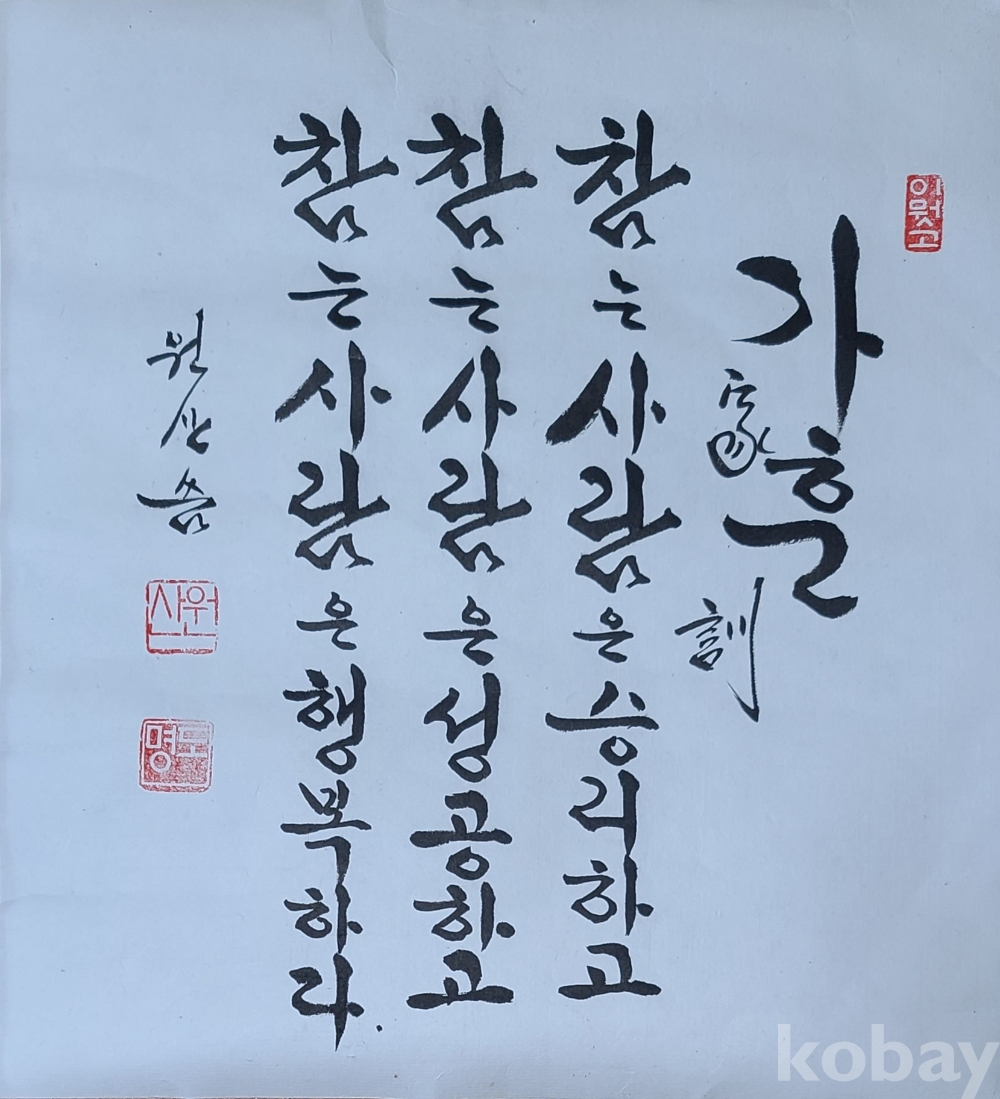 이뭣고
가훈
家訓
참는 사람은 승리하고
참는 사람은 성공하고
참는 사람은 행복하라.
원산 씀
원산
kobay